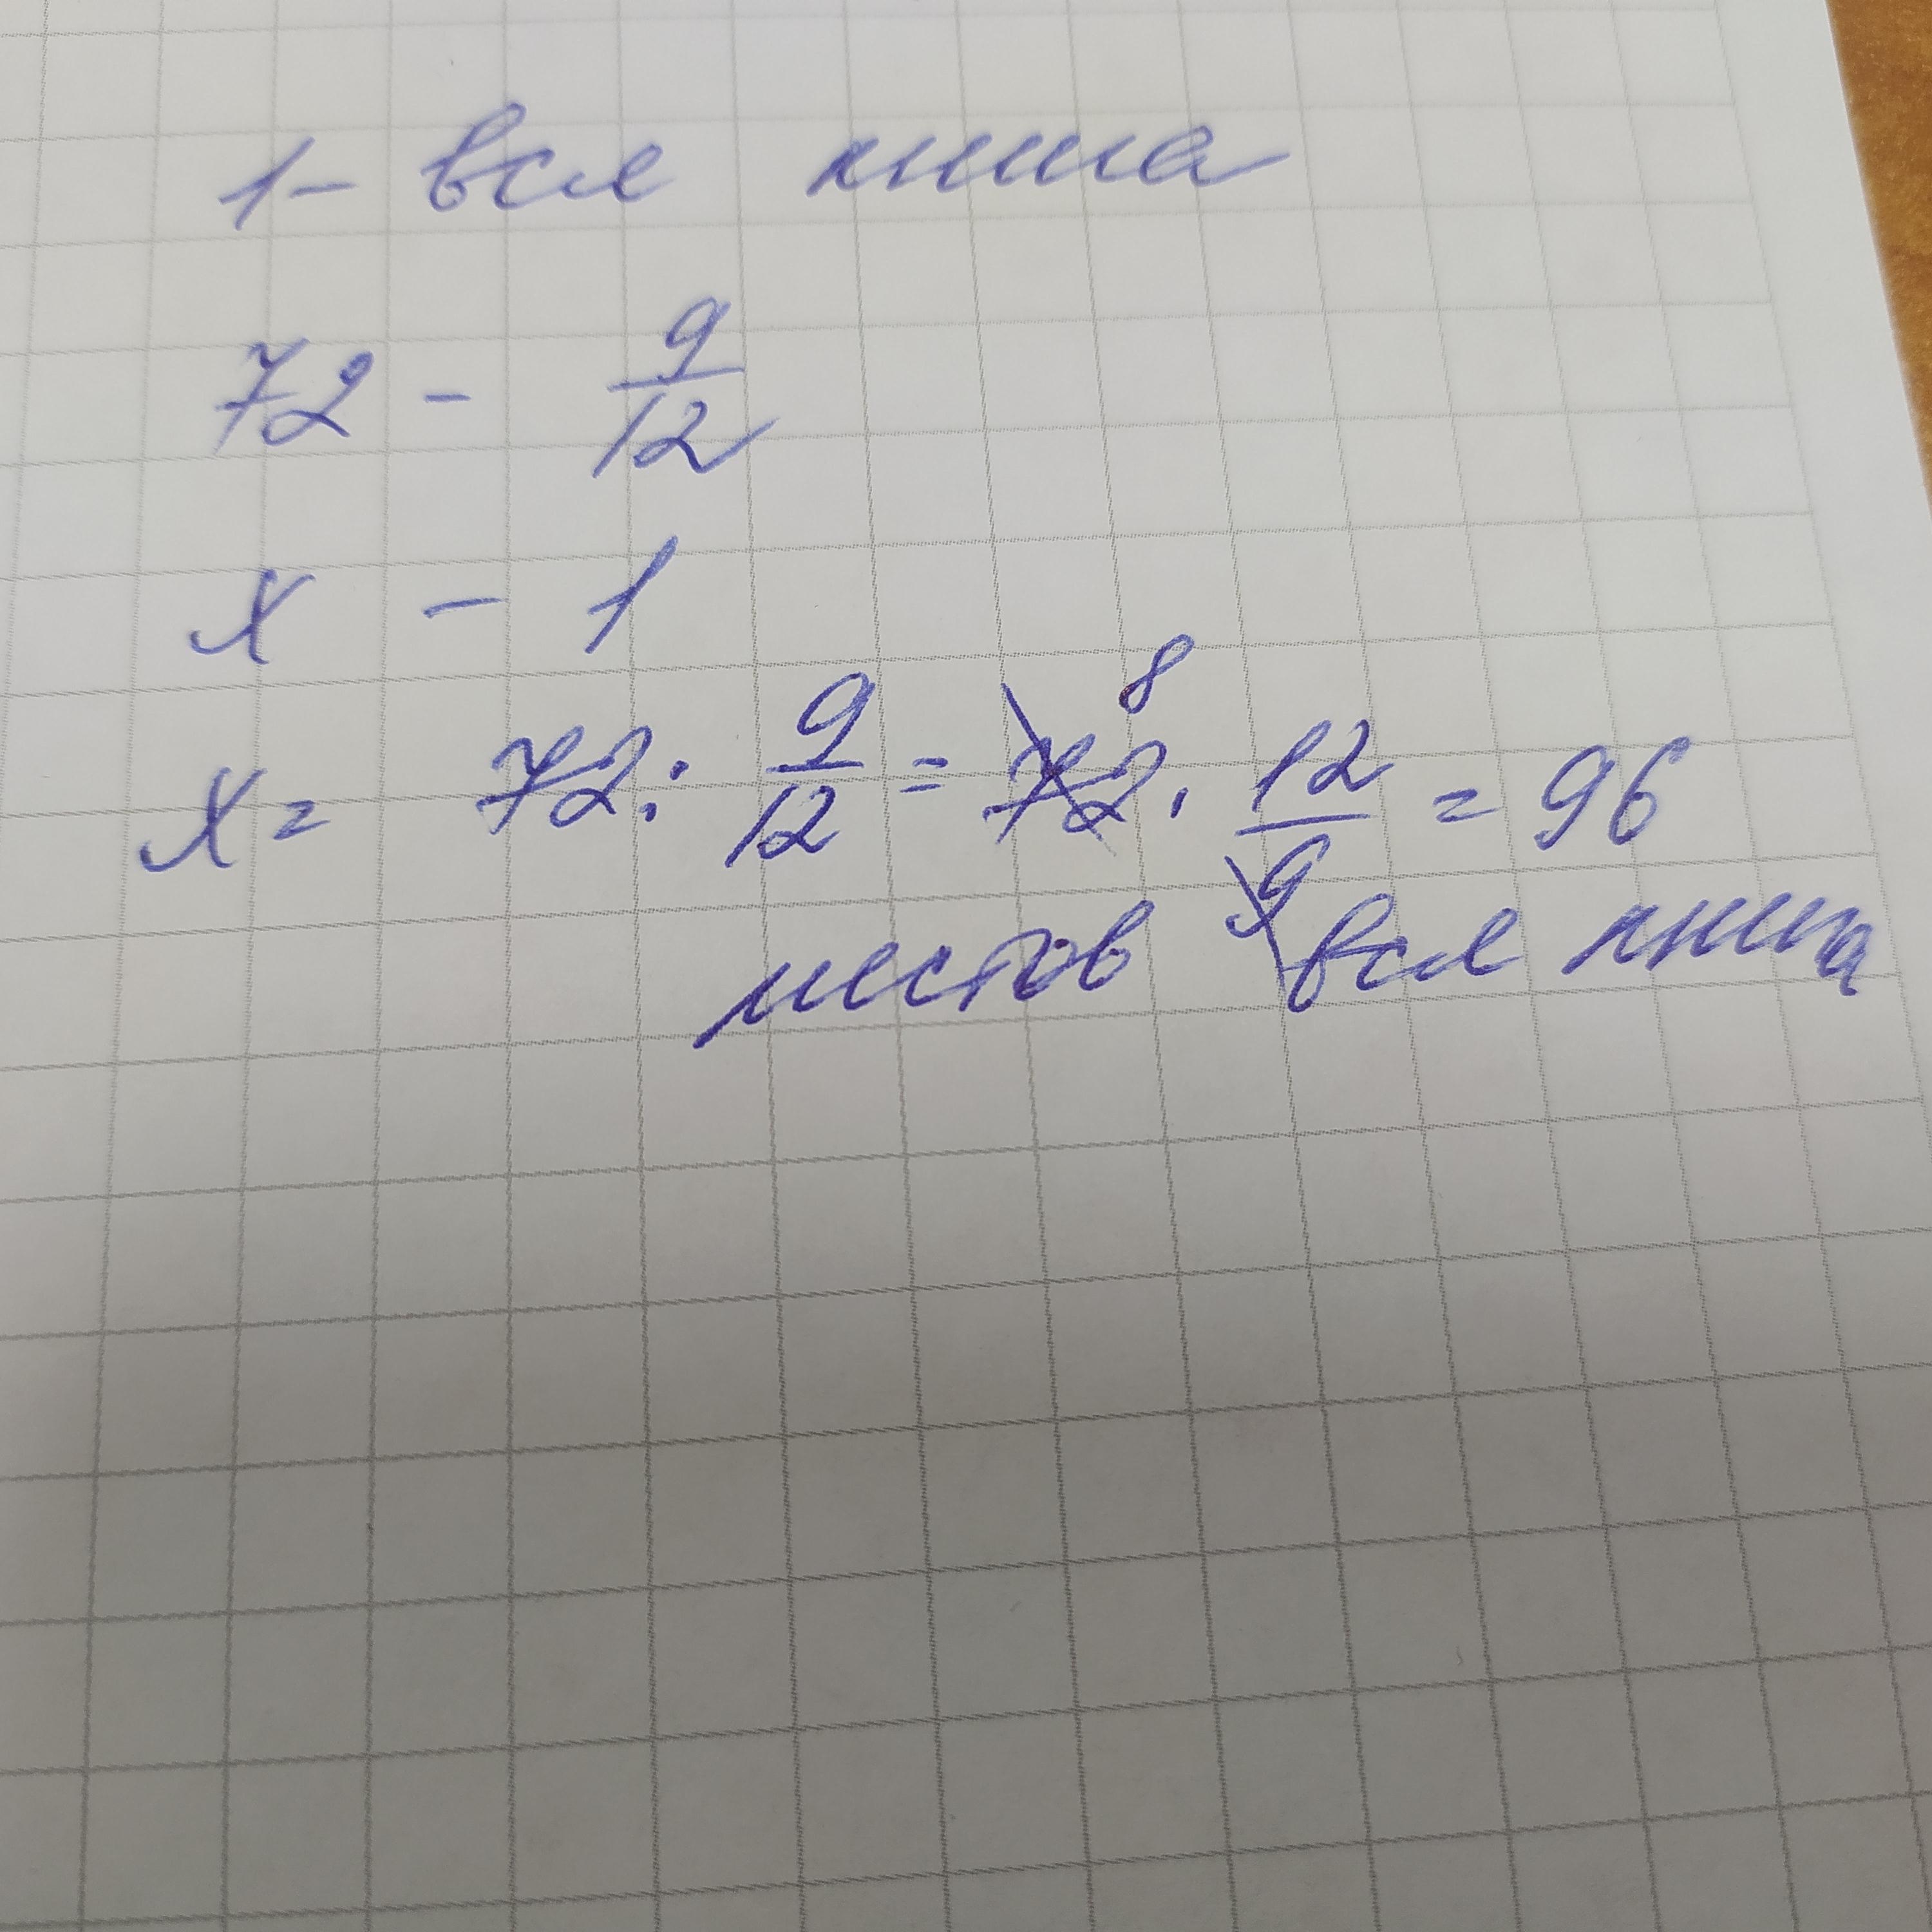 1 - вся книга
72 - 9/12
x - 1
x = 72 : 9/12 = 72 8 · 12/9 = 96
листов вся книга